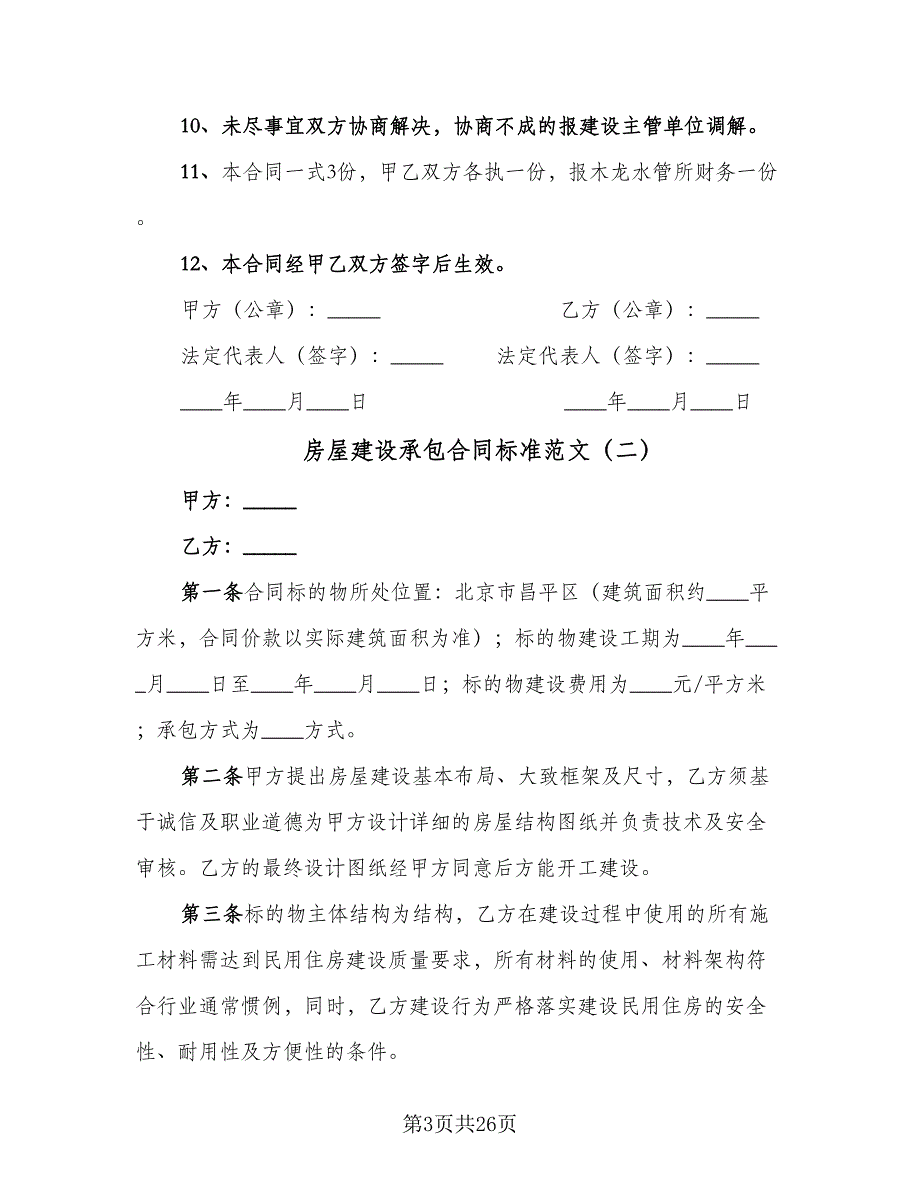 10、未尽事宜双方协商解决，协商不成的报建设主管单位调解。
11、本合同一式3份，甲乙双方各执一份，报木龙水管所财务一份
。
12、本合同经甲乙双方签字后生效。
甲方（公章）：_____ 乙方（公章）：_____
法定代表人（签字）：_____ 法定代表人（签字）：_____
____年____月____日 ____年____月____日
房屋建设承包合同标准范文（二）
甲方：_____
乙方：_____
第一条合同标的物所处位置：北京市昌平区（建筑面积约____平
方米，合同价款以实际建筑面积为准）；标的物建设工期为____年___
_月____日至____年____月____日；标的物建设费用为____元/平方米
；承包方式为____方式。
第二条甲方提出房屋建设基本布局、大致框架及尺寸，乙方须基
于诚信及职业道德为甲方设计详细的房屋结构图纸并负责技术及安全
审核。乙方的最终设计图纸经甲方同意后方能开工建设。
第三条标的物主体结构为结构，乙方在建设过程中使用的所有施
工材料需达到民用住房建设质量要求，所有材料的使用、材料架构符
合行业通常惯例，同时，乙方建设行为严格落实建设民用住房的安全
性、耐用性及方便性的条件。
第3页共26页